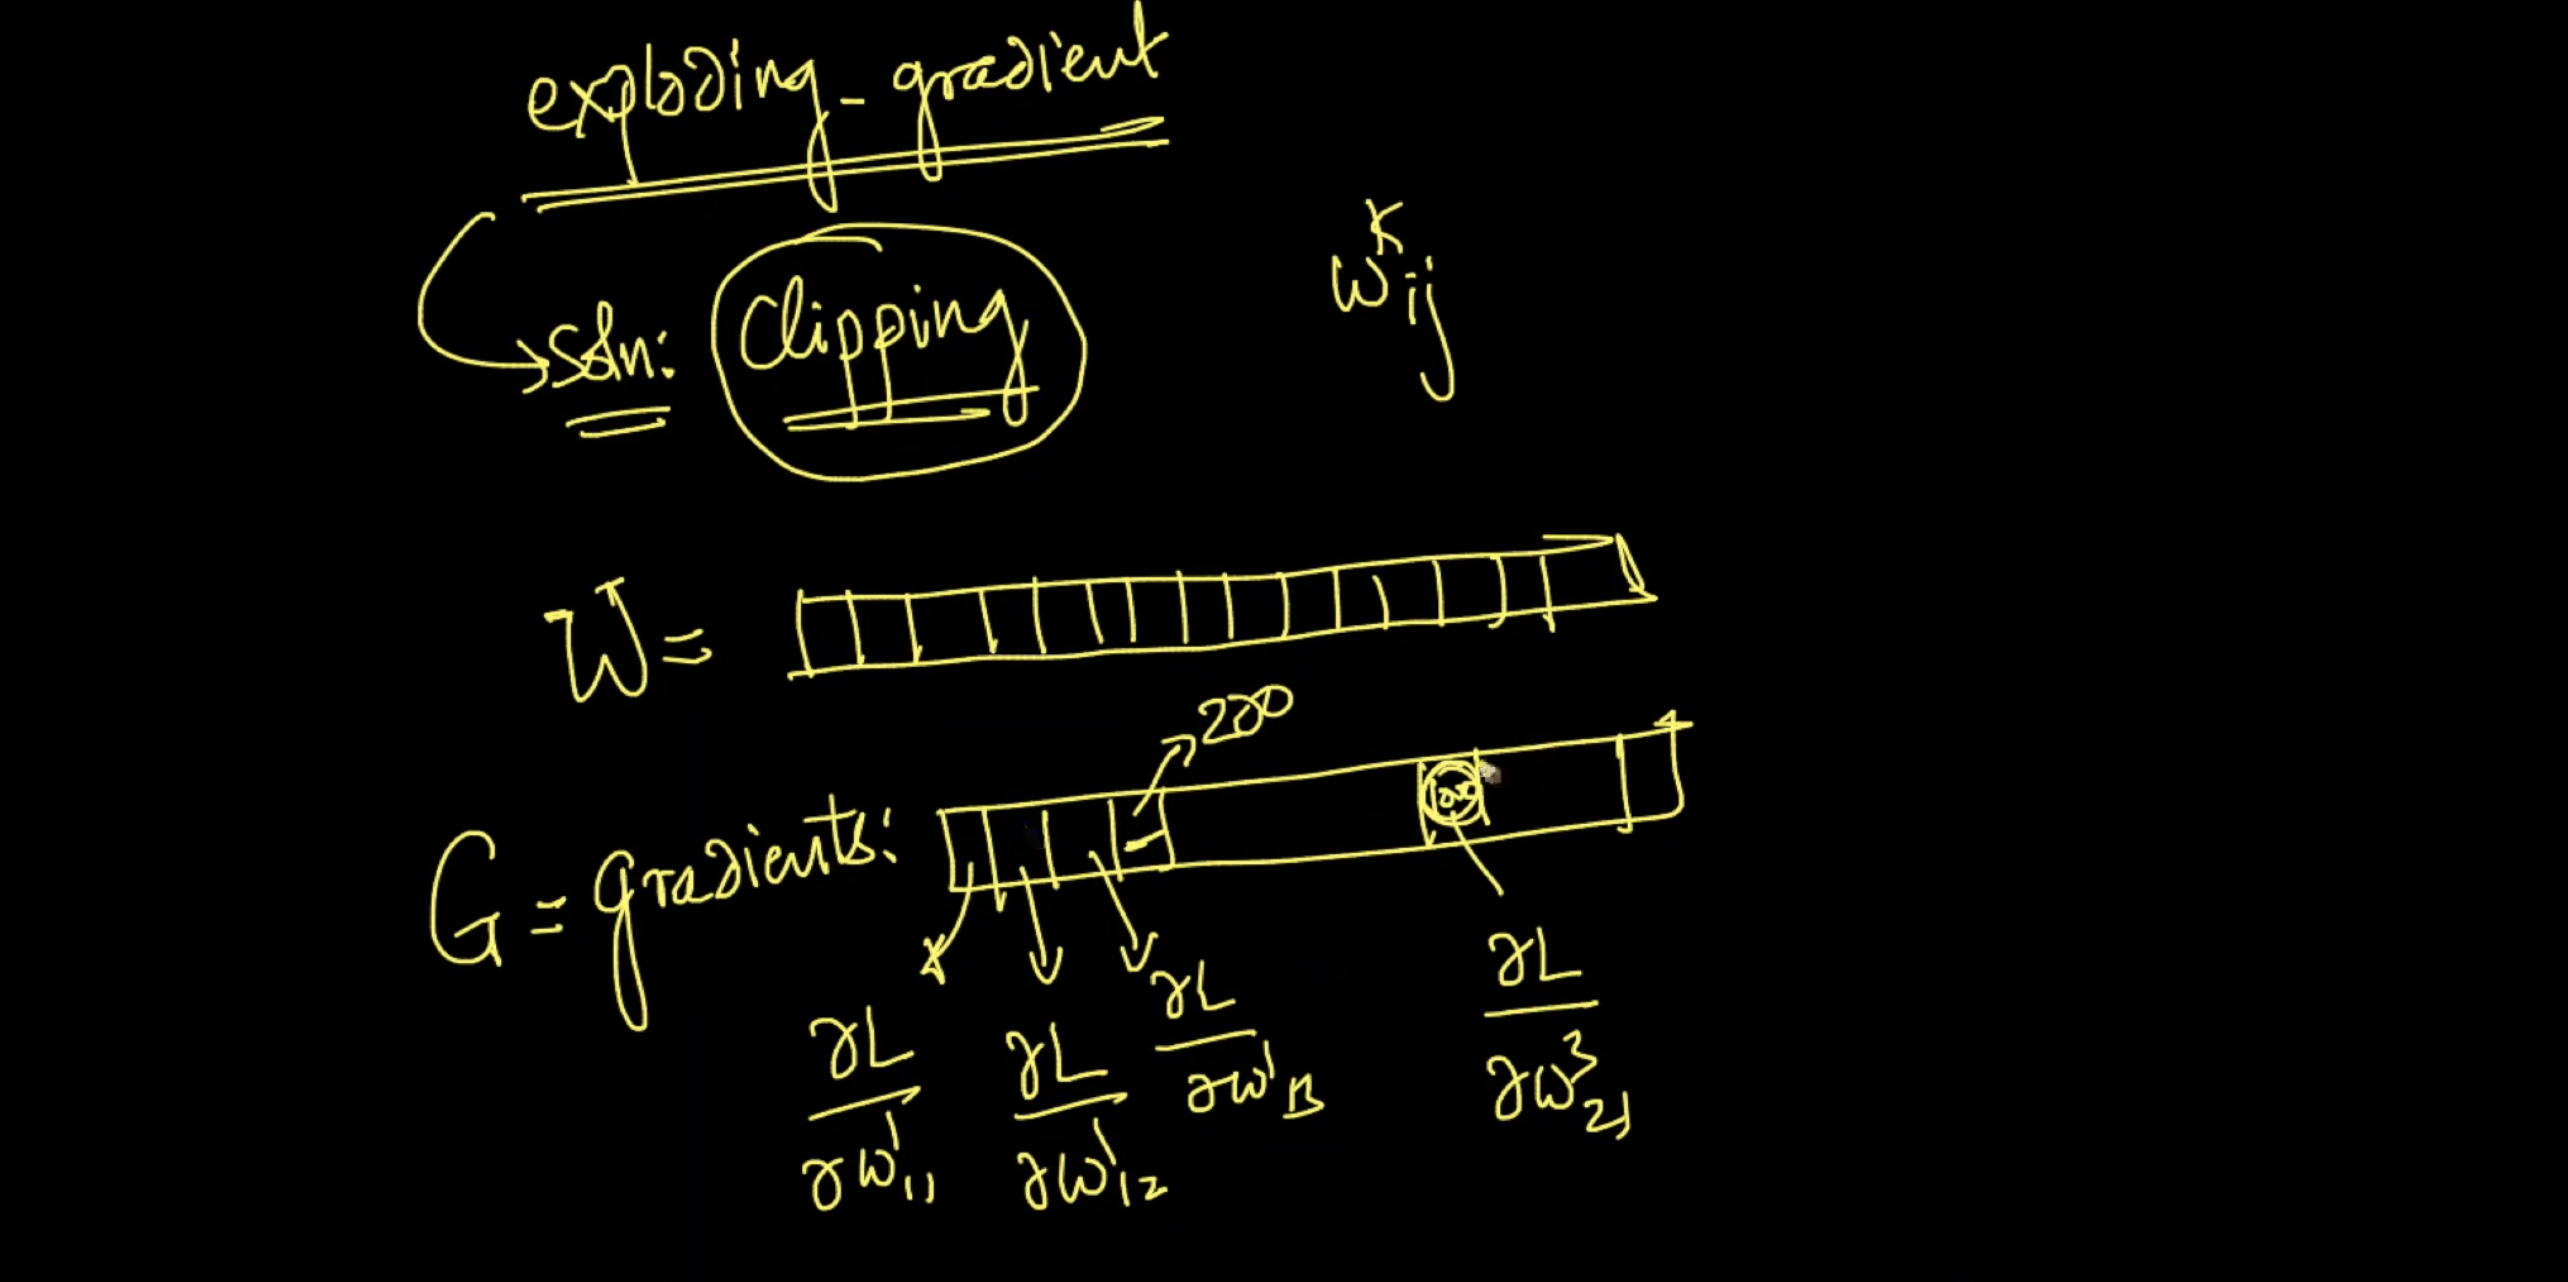 exploding - gradient
soln: Clipping
w^k_ij
W =
200
G = gradients:
∂L/∂w^1_11 ∂L/∂w^1_12 ∂L/∂w^1_13 ∂L/∂w^3_21